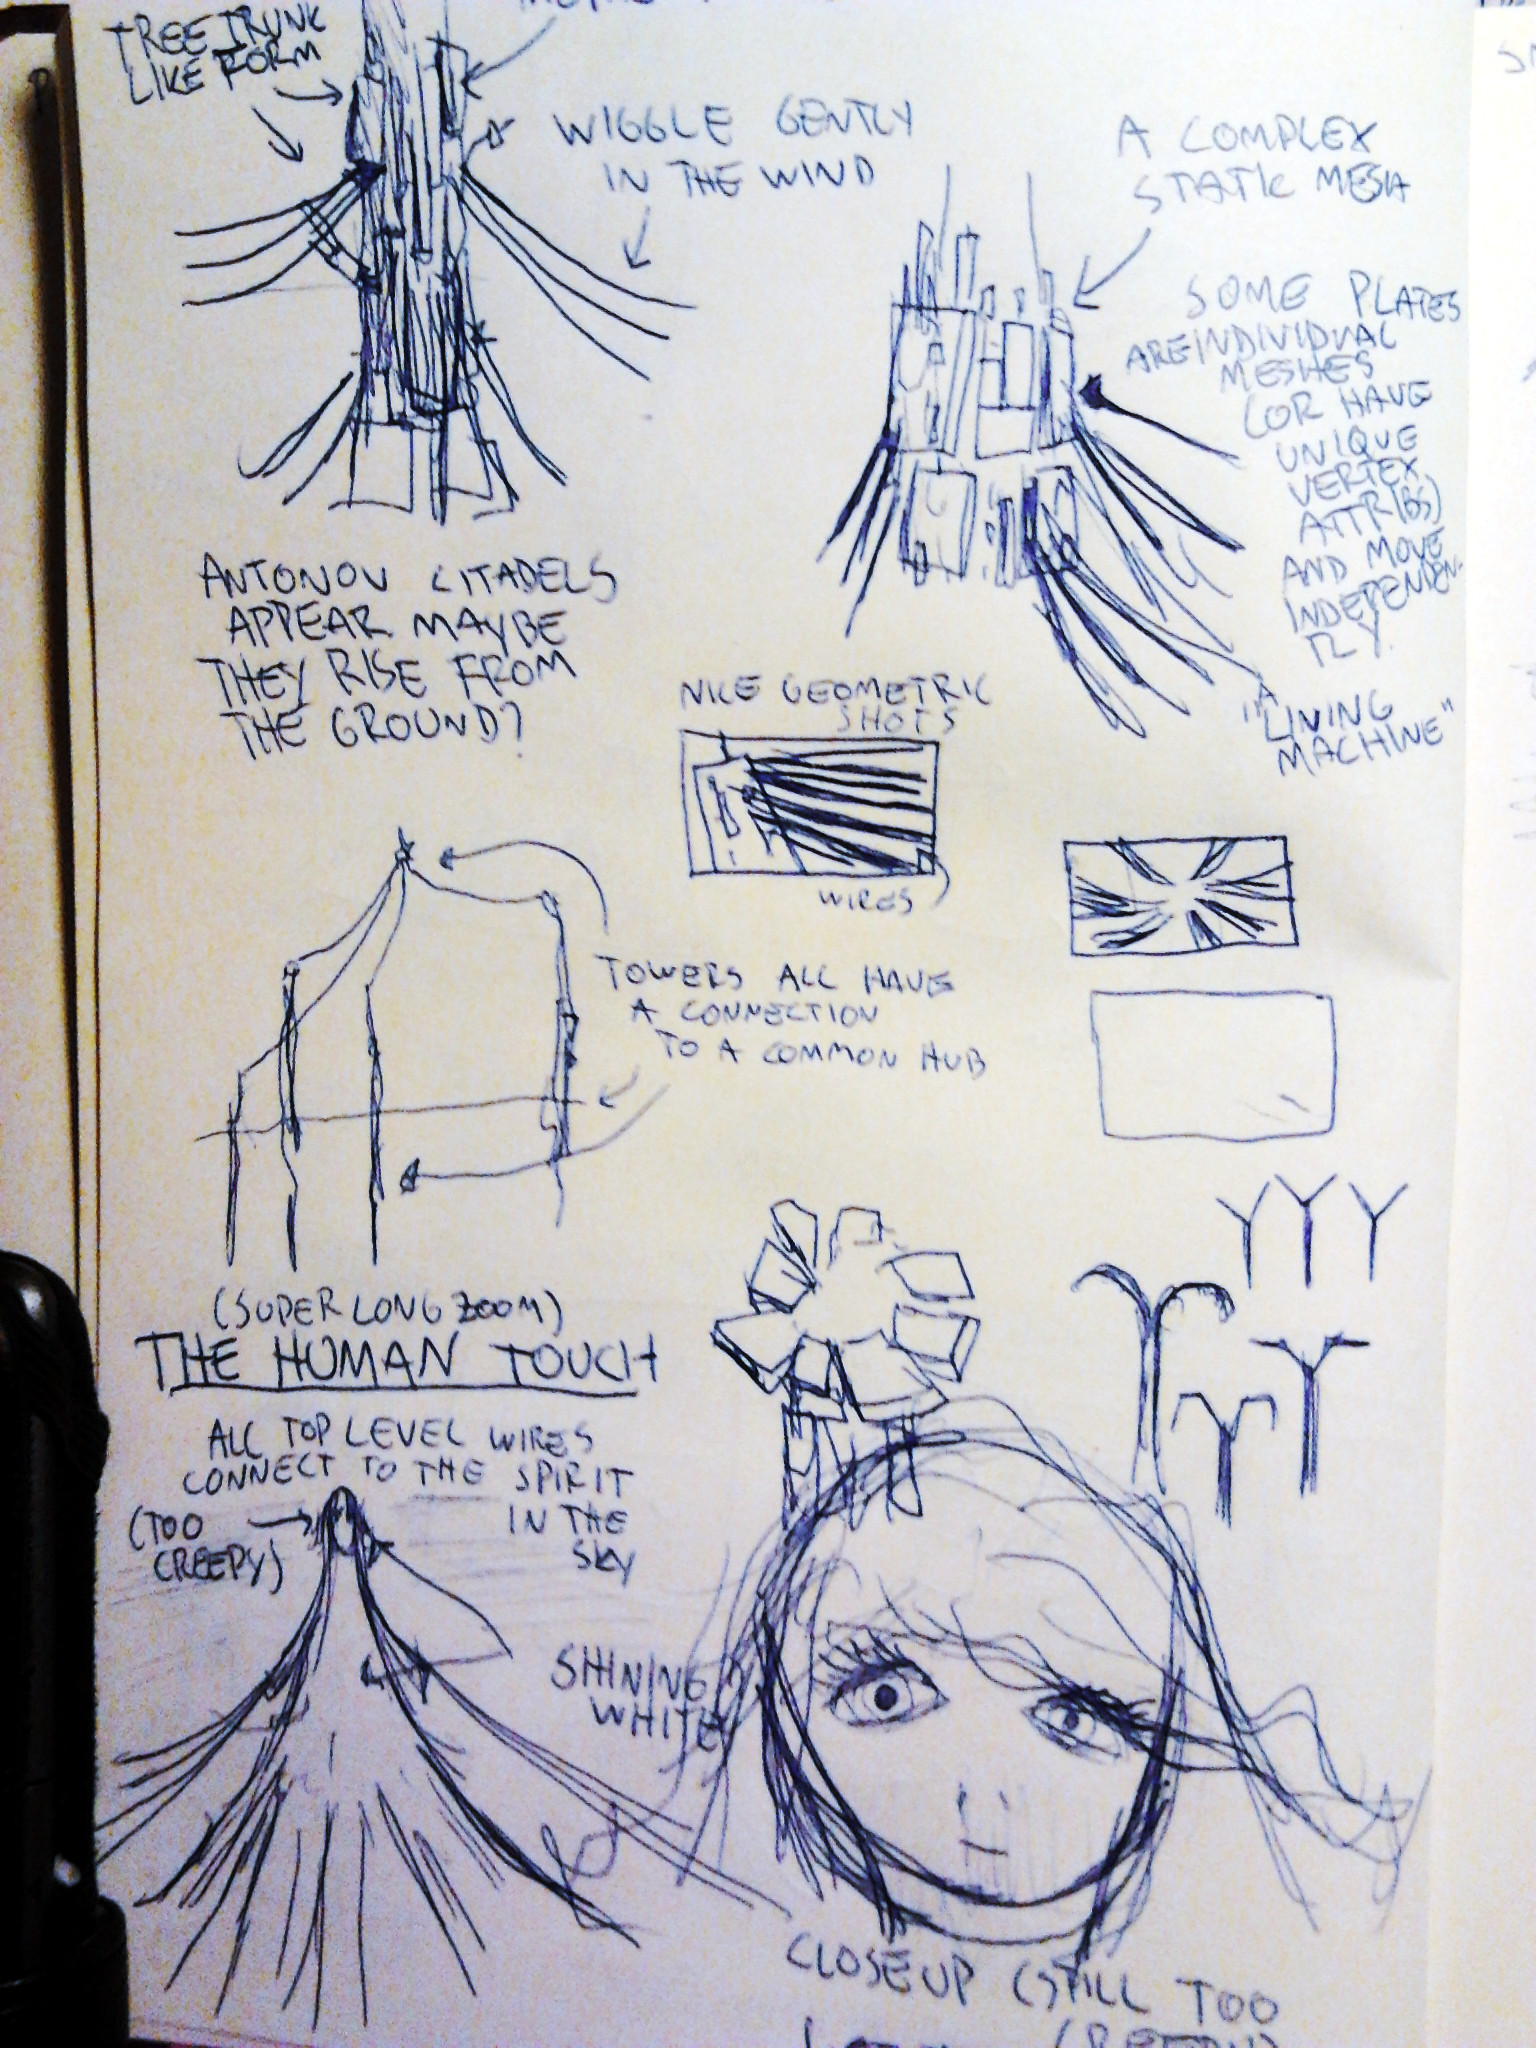 TREE TRUNK
LIKE FORM
WIGGLE GENTLY
IN THE WIND
A COMPLEX
STATIC MESH
SOME PLATES
ARE INDIVIDUAL
MESHES
(OR HAVE
UNIQUE
VERTEX
ATTRIBS)
AND MOVE
INDEPENDEN-
TLY.
"LIVING
MACHINE"
ANTONOV CITADELS
APPEAR MAYBE
THEY RISE FROM
THE GROUND?
NICE GEOMETRIC
SHOTS
WIRES
TOWERS ALL HAVE
A CONNECTION
TO A COMMON HUB
(SUPER LONG ZOOM)
THE HUMAN TOUCH
ALL TOP LEVEL WIRES
CONNECT TO THE SPIRIT
IN THE
SKY
(TOO
CREEPY)
SHINING
WHITE
CLOSEUP (STILL TOO